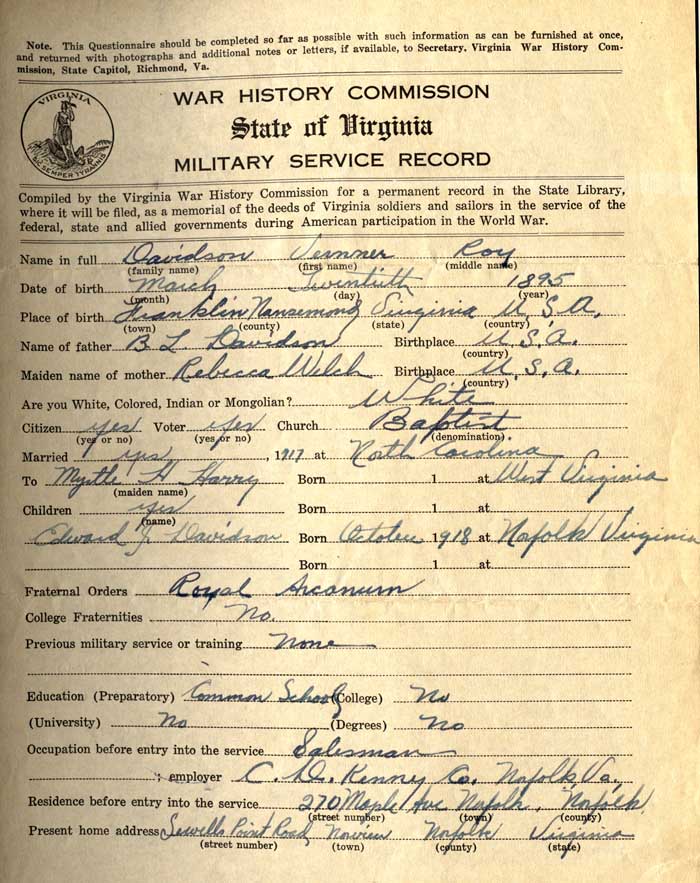 Note. This Questionnaire should be completed so far as possible with such information as can be furnished at once,
and returned with photographs and additional notes or letters, if available, to Secretary, Virginia War History Com-
mission, State Capitol, Richmond, Va.
VIRGINIA
SIC SEMPER TYRANNIS
WAR HISTORY COMMISSION
State of Virginia
MILITARY SERVICE RECORD
Compiled by the Virginia War History Commission for a permanent record in the State Library,
where it will be filed, as a memorial of the deeds of Virginia soldiers and sailors in the service of the
federal, state and allied governments during American participation in the World War.
Name in full Davidson Roy
(family name) (first name) (middle name)
Date of birth March Twentieth 1895
(month) (day) (year)
Place of birth Franklin Nansemond Virginia U.S.A.
(town) (county) (state) (country)
Name of father B L Davidson Birthplace U.S.A.
(country)
Maiden name of mother Rebecca Welch Birthplace U.S.A.
(country)
Are you White, Colored, Indian or Mongolian? White
Citizen yes Voter yes Church Baptist
(yes or no) (yes or no) (denomination).
Married yes, 1917 at North Carolina
To Myrtle H Harry Born 1 at West Virginia
(maiden name)
Children yes Born 1 at
(name)
Edward J Davidson Born October 1918 at Norfolk Virginia
Born 1 at
Fraternal Orders Royal Arcanum
College Fraternities No.
Previous military service or training None
Education (Preparatory) Common School (College) No
(University) No (Degrees) No
Occupation before entry into the service Salesman
" ; employer C. D. Kenney Co. Norfolk Va.
Residence before entry into the service 270 Maple Ave Norfolk, Norfolk
(street number) (town) (county)
Present home address Sewells Point Road, Norview Norfolk Virginia
(street number) (town) (county) (state)